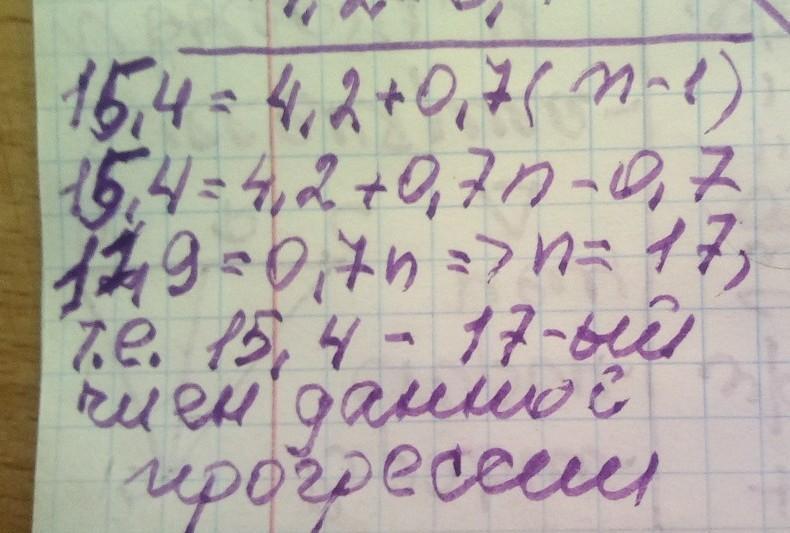 15,4 = 4,2+0,7( n-1)
15,4=4,2+0,7n-0,7
11,9=0,7n => n= 17,
т.е. 15,4 - 17-ый
член данной
прогрессии